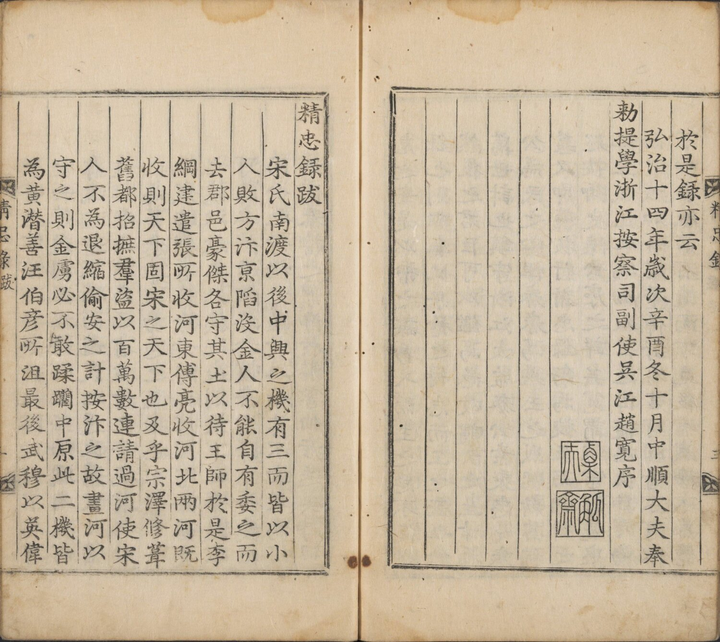 於是錄亦云
弘治十四年歲次辛酉冬十月中順大夫奉
勑提學浙江按察司副使吳江趙寬序
精忠錄
三
精忠錄跋
宋氏南渡以後中興之機有三而皆以小
人敗方汴京陷沒金人不能自有委之而
去郡邑豪傑各守其土以待王師於是李
綱建遣張所收河東傅亮收河北兩河既
收則天下固宋之天下也及乎宗澤修葺
舊都招撫羣盜以百萬數連請過河使宋
人不為退縮偷安之計按汴之故畫河以
守之則金虜必不敢蹂躪中原此二機皆
為黃潛善汪伯彥所沮最後武穆以英偉
精忠錄跋
一